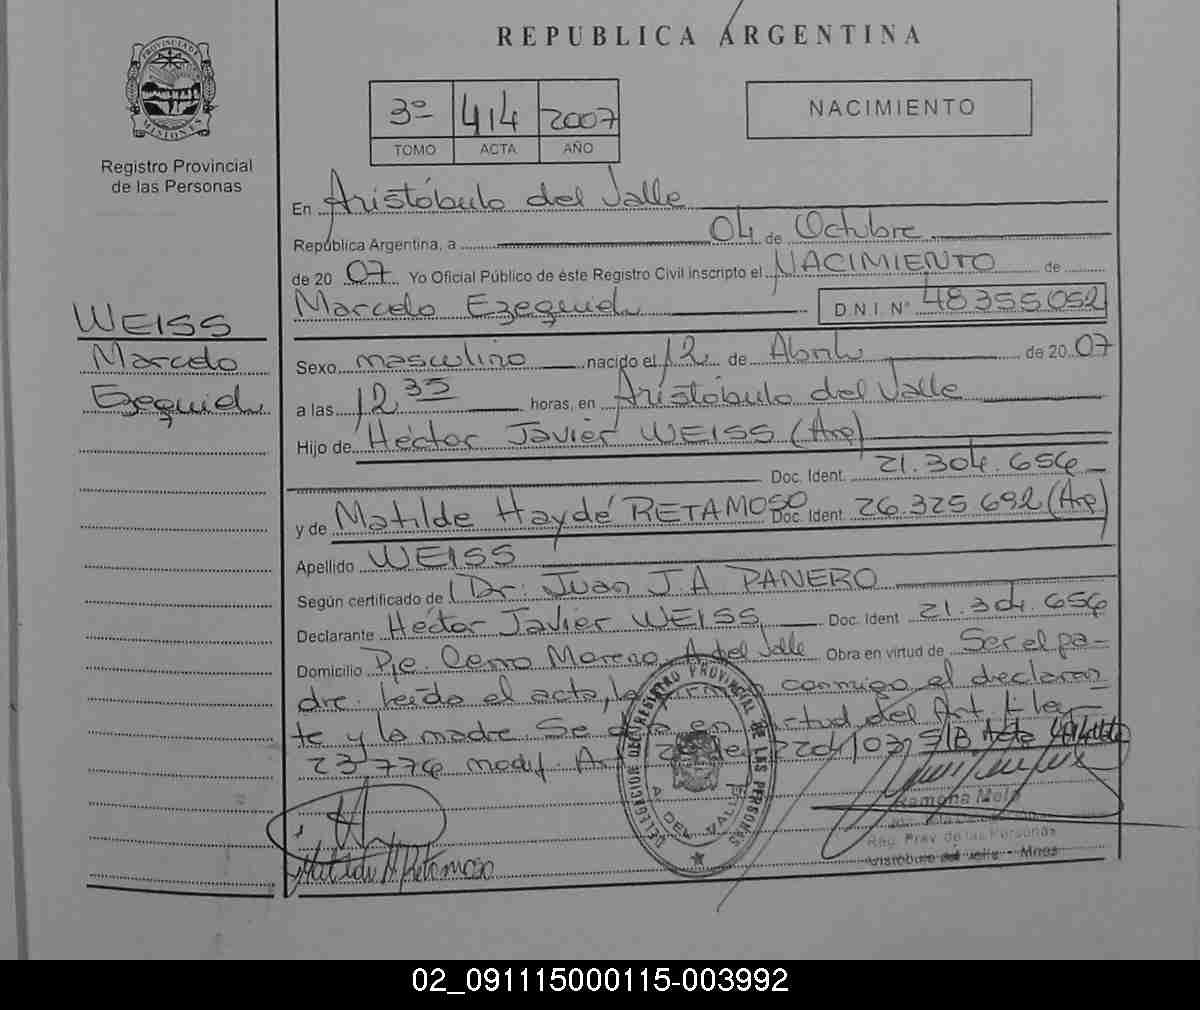 REPUBLICA ARGENTINA
PROVINCIA DE MISIONES
Registro Provincial
de las Personas
3º 414 2007
TOMO ACTA AÑO
NACIMIENTO
En Aristóbulo del Valle
República Argentina, a 04 de Octubre
de 2007 Yo Oficial Público de éste Registro Civil inscripto el NACIMIENTO de
Marcelo Ezequiel D.N.I. Nº 48355052
WEISS
Marcelo
Ezequiel
Sexo masculino nacido el 12 de Abril de 2007
a las 12 35 horas, en Aristóbulo del Valle
Hijo de Héctor Javier WEISS (Arg)
Doc. Ident. 21.304.656
y de Matilde Haydé RETAMOSO Doc. Ident 26.325.692 (Arg)
Apellido WEISS
Según certificado de Dr: Juan J.A PANERO
Declarante Héctor Javier WEISS Doc. Ident 21.304.656
Domicilio Pje. Cerro Moreno, A del Valle Obra en virtud de Ser el pa-
dre. Leído el acta, la conmigo el declaran-
te y la madre. Se en virtud del Art.
23.776 modf. S/B. Acta
DELEGACION DEL REGISTRO PROVINCIAL DE LAS PERSONAS
A. DEL VALLE
Ramona Melo
Reg. Prov. de las Personas
Aristóbulo del Valle - Mnes
Matilde H Retamoso
02_091115000115-003992